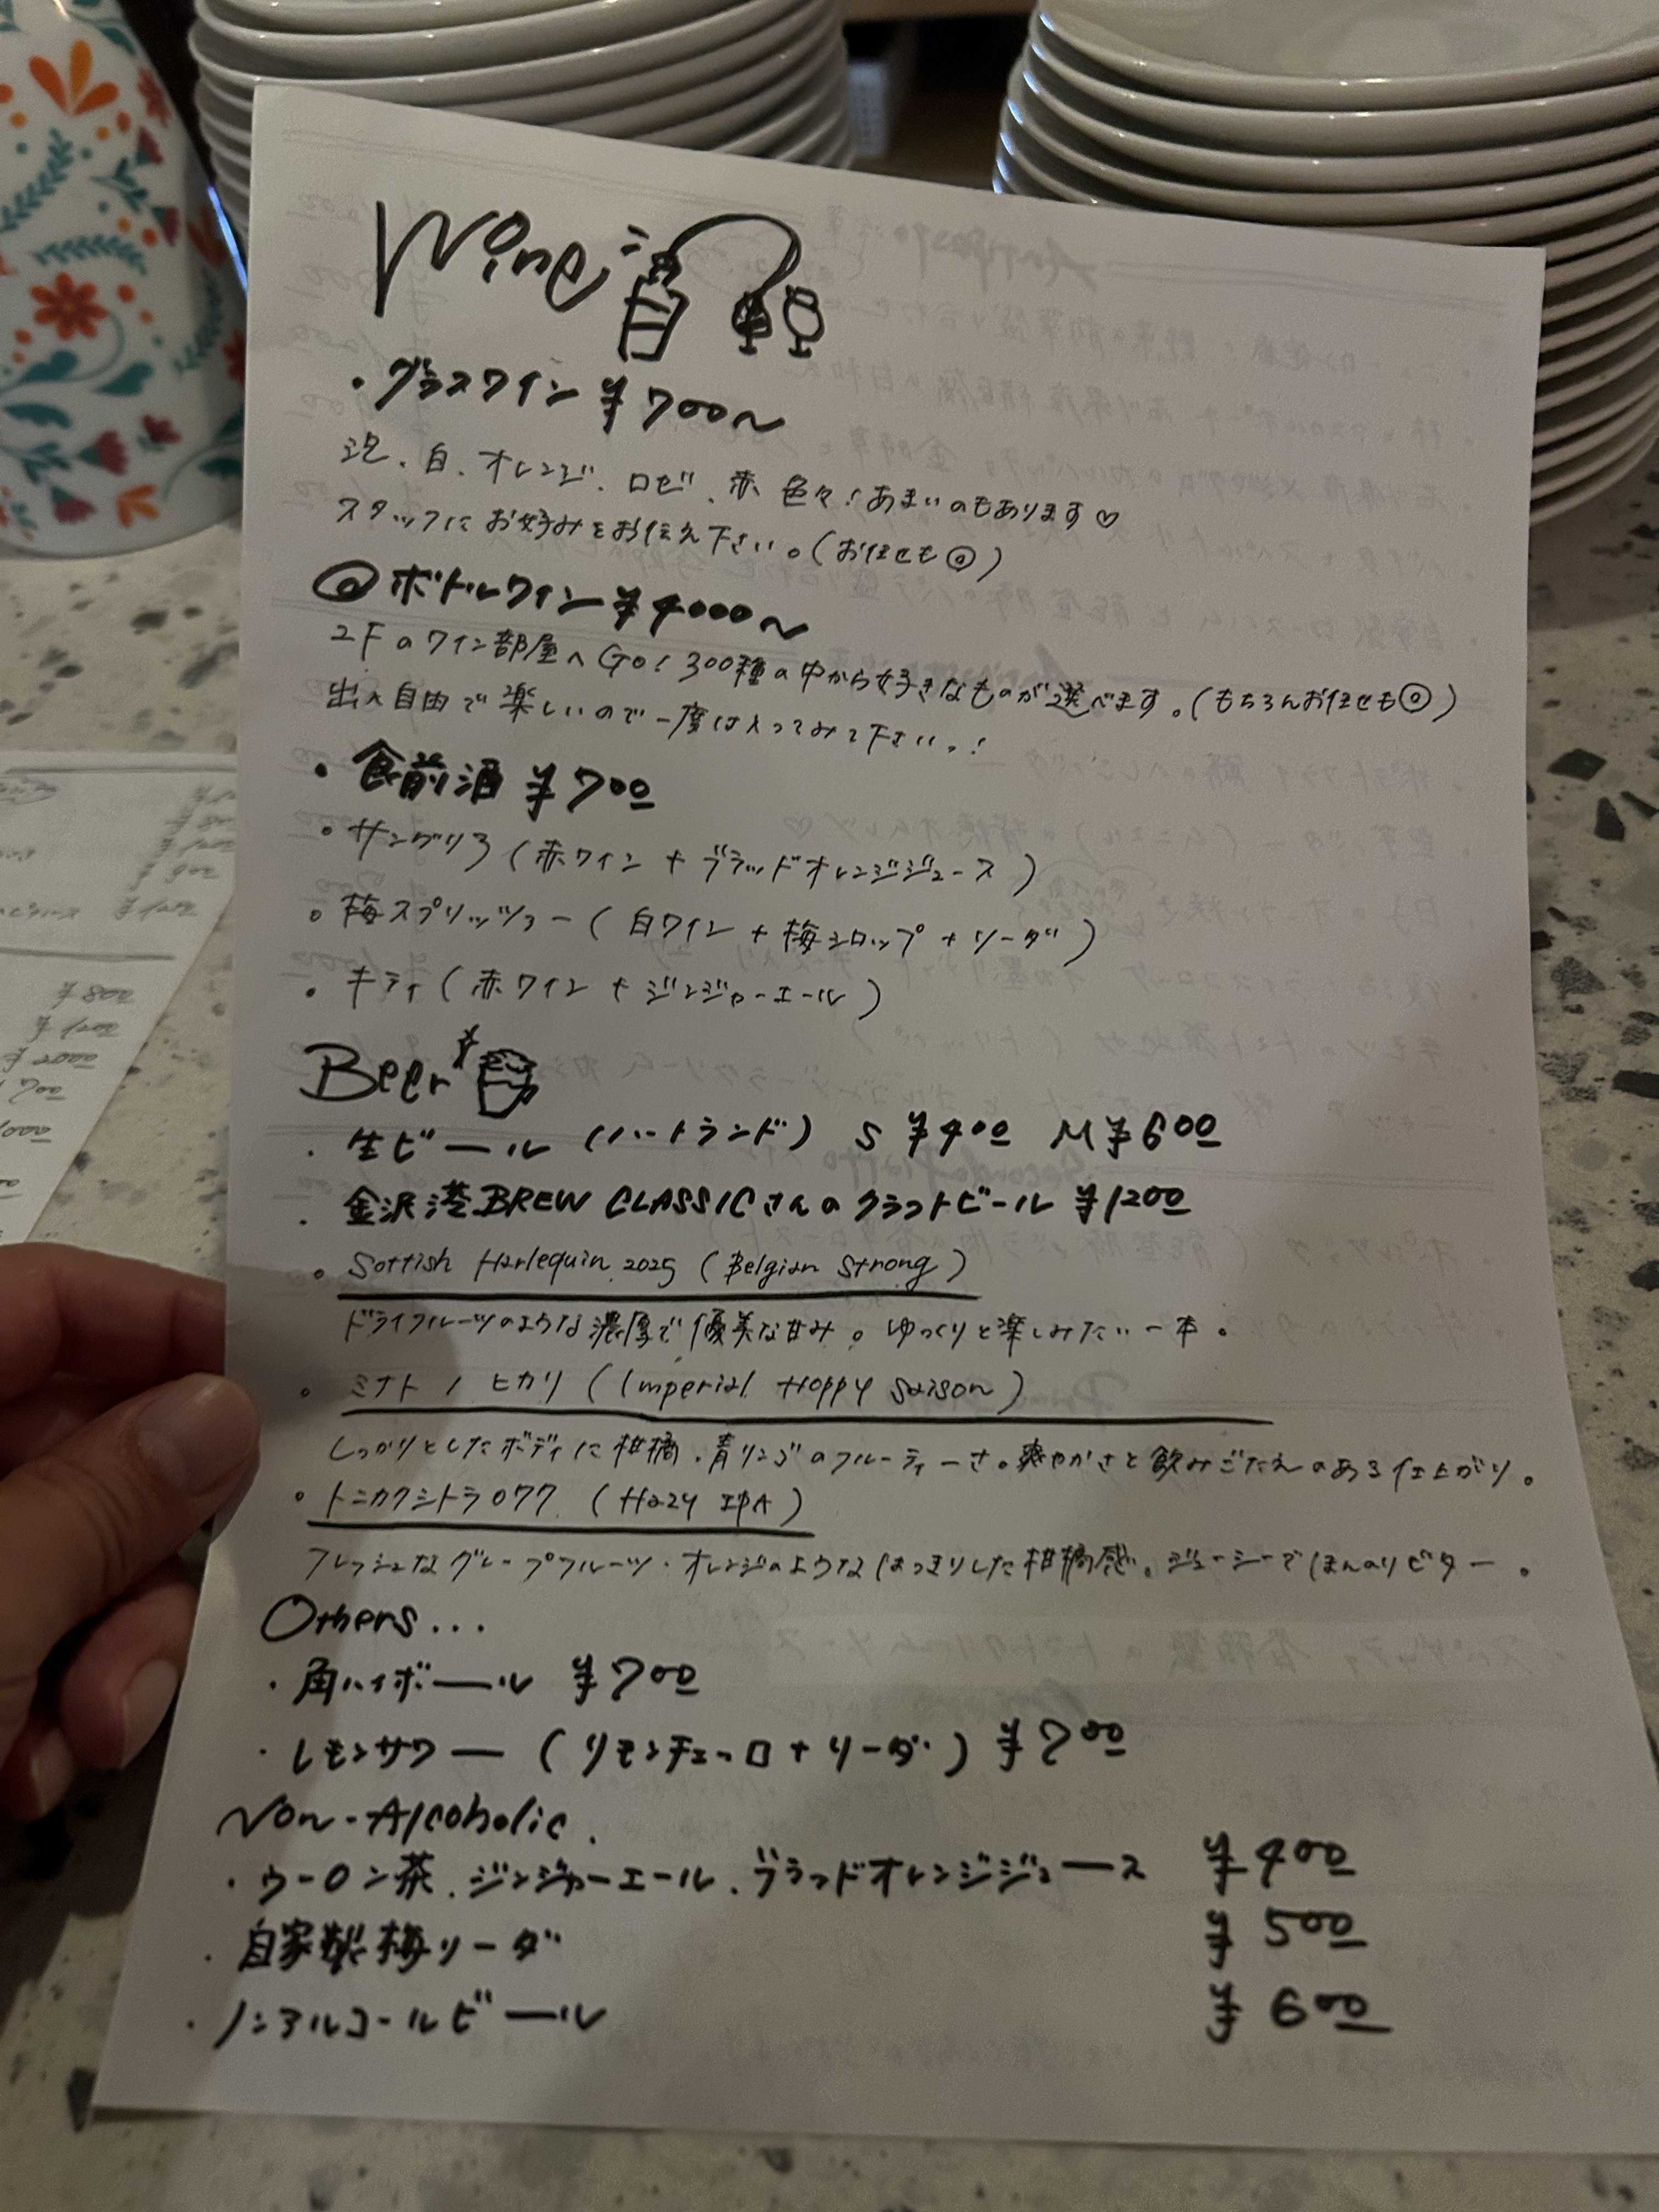 Wine
・グラスワイン ¥700〜
泡、白、オレンジ、ロゼ、赤 色々!あまいのもあります♡
スタッフにお好みをお伝え下さい。(お任せも◎)
◎ボトルワイン ¥4000〜
2Fのワイン部屋へGO! 300種の中から好きなものが選べます。(もちろんお任せも◎)
出入自由で楽しいので一度は入ってみて下さい。!
・食前酒 ¥700
・サングリア(赤ワイン+ブラッドオレンジジュース)
・梅スプリッツァー(白ワイン+梅シロップ+ソーダ)
・キティ(赤ワイン+ジンジャーエール)
Beer
・生ビール (ハートランド) S ¥400 M ¥600
・金沢港BREW CLASSICさんのクラフトビール ¥1200
・Sottish Harlequin 2025 (Belgian Strong)
ドライフルーツのような濃厚で優美な甘み。ゆっくりと楽しみたい一本。
・ミナトノヒカリ (Imperial Hoppy Saison)
しっかりとしたボディに柑橘・青リンゴのフルーティーさ。爽やかさと飲みごたえのある仕上がり。
・トニカクシトラ077 (Hazy IPA)
フレッシュなグレープフルーツ・オレンジのようなはっきりした柑橘感。ジューシーでほんのりビター。
Others...
・角ハイボール ¥700
・レモンサワー (リモンチェッロ+ソーダ) ¥700
Non-Alcoholic.
・ウーロン茶、ジンジャーエール、ブラッドオレンジジュース ¥400
・自家製梅ソーダ ¥500
・ノンアルコールビール ¥600
¥800
¥1200
¥2000